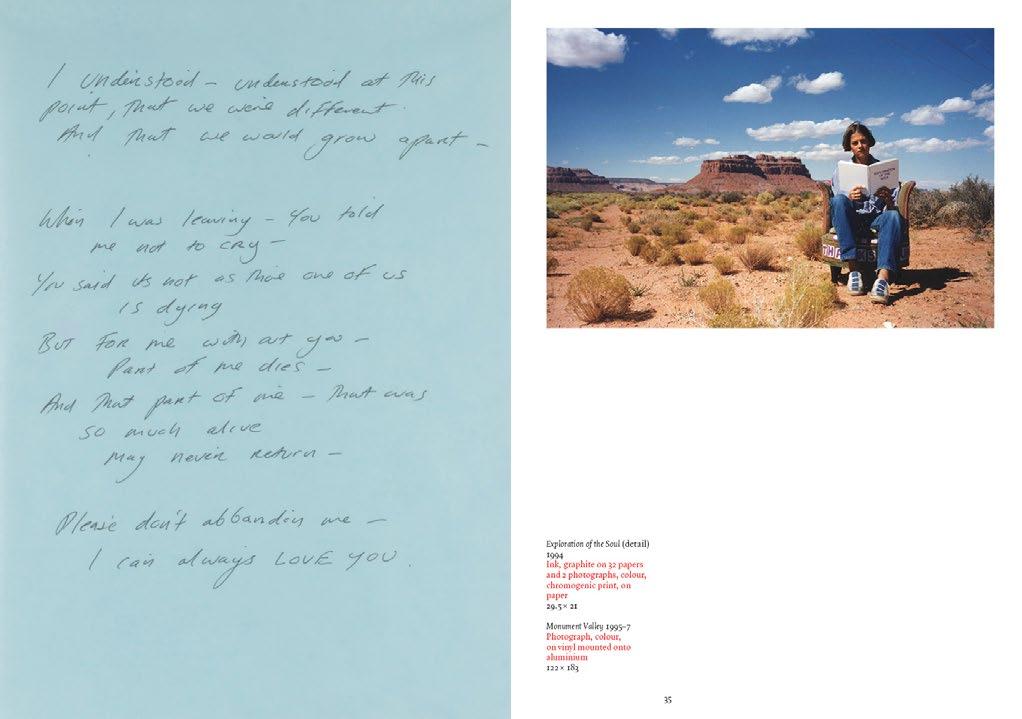 I understood – understood at this
point, that we were different.
And that we would grow apart –
When I was leaving – You told
me not to cry –
You said its not as thoe one of us
is dying
But for me with out you –
Part of me dies –
And that part of me – that was
so much alive
may never return –
Please don't abbandon me –
I can always LOVE YOU.
EXPLORATION OF THE SOUL
Exploration of the Soul (detail)
1994
Ink, graphite on 32 papers
and 2 photographs, colour,
chromogenic print, on
paper
29.5 × 21
Monument Valley 1995–7
Photograph, colour,
on vinyl mounted onto
aluminium
122 × 183
35